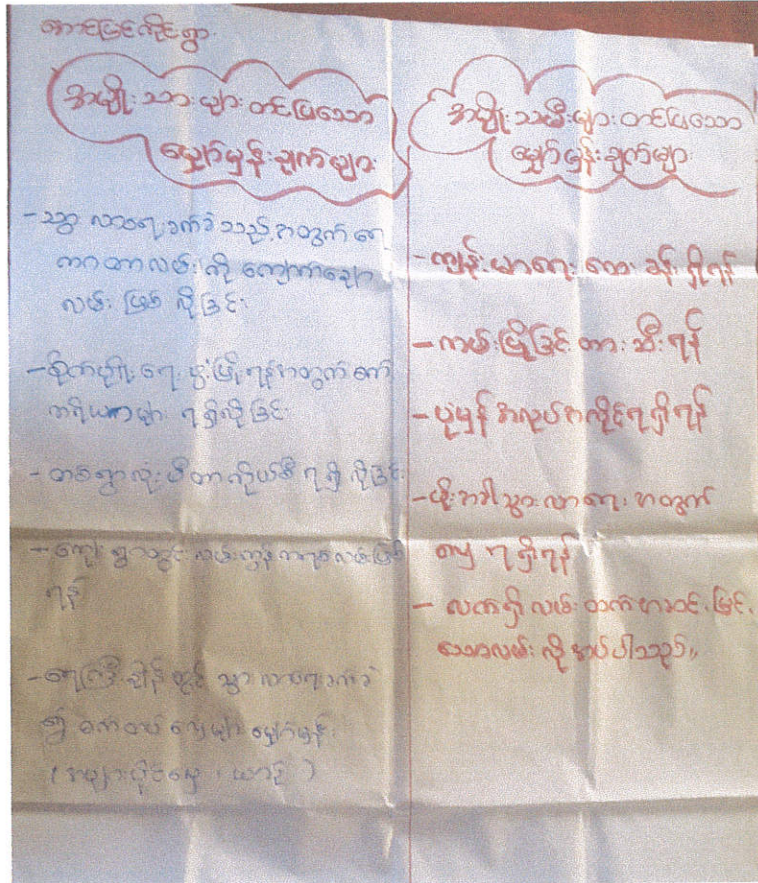 အောင်မြင်ကိုင်းရွာ
အမျိုးသားများ တင်ပြသော
မျှော်မှန်းချက်များ
- သွားလာရေးခက်ခဲသည့်အတွက် ရေ
ကာတာလမ်းကို ကျောက်ချော
လမ်း ဖြစ်လိုခြင်း
- စိုက်ပျိုးရေး ဖွံ့ဖြိုးရန်အတွက် စက်
ကရိယာများ ရရှိလိုခြင်း
- တစ်ရွာလုံး မီတာကိုယ်စီ ရရှိလိုခြင်း
- ကျေးရွာတွင်း လမ်း ကွန်ကရစ်လမ်းဖြစ်
ရန်
- ရေကြီးချိန်တွင် သွားလာရေးခက်ခဲ
၍ စက်တပ်လှေများ မျှော်မှန်း
(အများပိုင်လှေ ၊ ယာဉ်)
အမျိုးသမီးများ တင်ပြသော
မျှော်မှန်းချက်များ
- ကျန်းမာရေး ဆေးခန်း ရှိရန်
- ကမ်းပြိုခြင်း တားဆီးရန်
- ပုံမှန် အလုပ်အကိုင်ရရှိရန်
- မိုးအခါသွားလာရေးအတွက်
လှေ ရရှိရန်
- လက်ရှိလမ်းထက် အဆင့်မြင့်
သောလမ်း လိုအပ်ပါသည်။